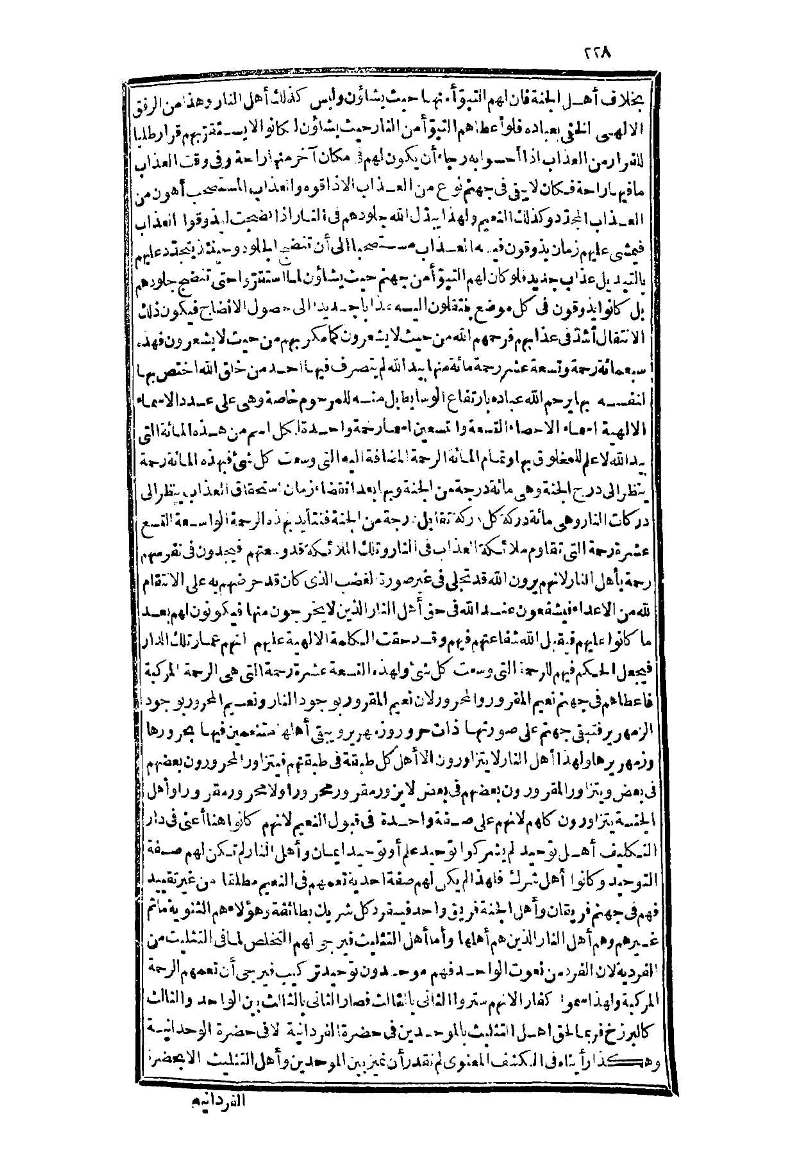 ٢٢٨
بخلاف أهل الجنة فان لهم التبوّأ منها حيث يشاؤن وليس كذلك أهل النار وهذا من الرفق
الالهى الخفى بعباده فلو أعطاهم التبوّأ من النار حيث يشاؤن لكانوا لا يستقر بهم قرار طلبا
للفرار من العذاب اذا أحسوا به رجاء أن يكون لهم فى مكان آخر منها راحة وفى وقت العذاب
ما فيها راحة فكان لا يبقى فى جهنم نوع من العذاب الاذاقوه والعذاب المستصحب أهون من
العذاب المجدّد وكذلك النعيم ولهذا يبدّل الله جلودهم فى النار اذا نضجت ليذوقوا العذاب
فيمشى عليهم زمان يذوقون فيه العذاب مستصحبا الى أن تنضج الجلود وحينئذ يتجدّد عليهم
بالتبديل عذاب جديد فلو كان لهم التبوّأ من جهنم حيث يشاؤن لما استقرّوا حتى تنضج جلودهم
بل كانوا يذوقون فى كل موضع ينتقلون اليه عذابا جديدا الى حصول الانضاج فيكون ذلك
الانتقال أشدّ فى عذابهم فرحمهم الله من حيث لا يشعرون كما مكر بهم من حيث لا يشعرون فهذه
سبعمائة رحمة وتسعة عشر رحمة مائة منها بيد الله لم يتصرف فيها أحد من خلق الله اختص بها
لنفسه بها يرحم الله عباده بارتفاع الوسايط بل منه للمرحوم خاصة وهى على عدد الاسماء
الالهية اسماء الاحصاء التسعة والتسعين اسما رحمة واحدة لكل اسم من هذه المائة التى
بيد الله لا علم للمخلوق بها وتمام المائة الرحمة المضافة اليه التى وسعت كل شئ فبهذه المائة رحمة
ينظر الى درج الجنة وهى مائة درجة من الجنة وبها بعد انقضاء زمان استحقاق العذاب ينظر الى
دركات النار وهى مائة دركة كل دركة تقابل درجة من الجنة فتتأيد بهذه الرحمة الواسعة التسع
عشرة رحمة التى تقاوم ملائكة العذاب فى النار وتلك الملائكة قد وسعتهم فيجدون فى نفوسهم
رحمة بأهل النار لانهم يرون الله قد تجلى فى غير صورة الغضب الذى كان قد حرضهم به على الانتقام
لله من الاعداء فيشفعون عند الله فى حق أهل النار الذين لا يخرجون منها فيكونون لهم بعد
ما كانوا عليهم فيقبل الله شفاعتهم فيهم وقد حقت الكلمة الالهية عليهم انهم عمار تلك الدار
فيجعل الحكم فيهم للرحمة التى وسعت كل شئ ولهذه التسعة عشرة رحمة التى هى الرحمة المركبة
فاعطاهم فى جهنم نعيم المقرور والمحرور لان نعيم المقرور بوجود النار ونعيم المحرور بوجود
الزمهرير فتبقى جهنم على صورتها ذات حرور وزمهرير ويبقى أهلها متنعمين فيها بحرورها
وزمهريرها ولهذا أهل النار لا يتزاورون الا أهل كل طبقة فى طبقتهم فيتزاور المحرورون بعضهم
فى بعض ويتزاور المقرورون بعضهم فى بعض لا يزور مقرور محرورا ولا محرور مقرورا وأهل
الجنة يتزاورون كلهم لانهم على صفة واحدة فى قبول النعيم لانهم كانوا هنا أعنى فى دار
التكليف أهل توحيد لم يشركوا توحيد علم أو توحيد ايمان وأهل النار لم تكن لهم صفة
التوحيد وكانوا أهل شرك فلهذا لم يكن لهم صفة احدية تعمهم فى النعيم مطلقا من غير تقييد
فهم فى جهنم فريقان وأهل الجنة فريق واحد فينفرد كل شريك بطائفة وهؤلاء هم الثنوية ما ثم
غيرهم وهم أهل النار الذين هم أهلها وأما أهل التثليث فيرجى لهم التخلص لما فى التثليث من
الفردية لان الفرد من نعوت الواحد فهم موحدون توحيد تركيب فيرجى أن تعمهم الرحمة
المركبة ولهذا سموا كفار الانهم ستروا الثانى بالثالث فصار الثانى بالثالث بين الواحد والثالث
كالبرزخ فربما لحق اهل التثليث بالموحدين فى حضرة الفردانية لا فى حضرة الوحدانية
وهكذا رأيناه فى الكشف المعنوى لم نقدر أن نميز بين الموحدين وأهل التثليث الا بحضرة
الفردانية